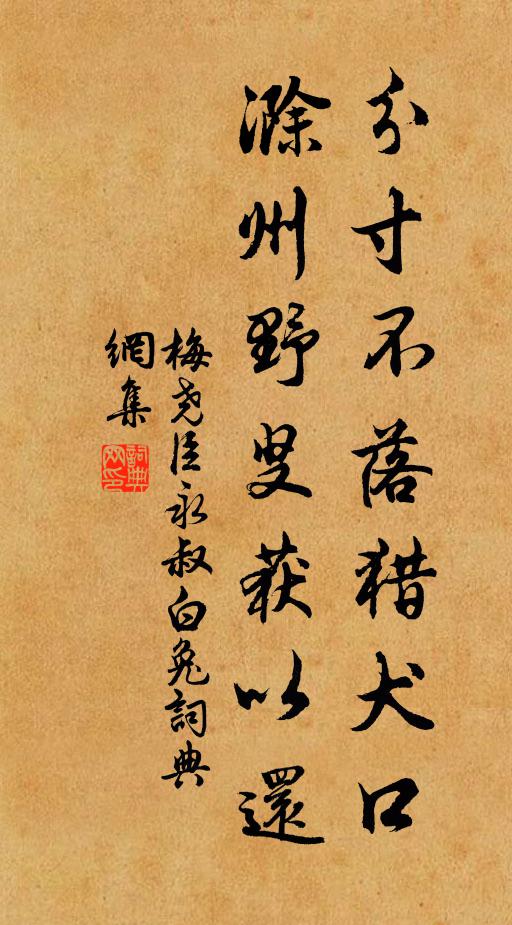 分寸不落猎犬口
滁州野叟获以還
梅尧臣永叔白兔詞典
網集
詞典
网印